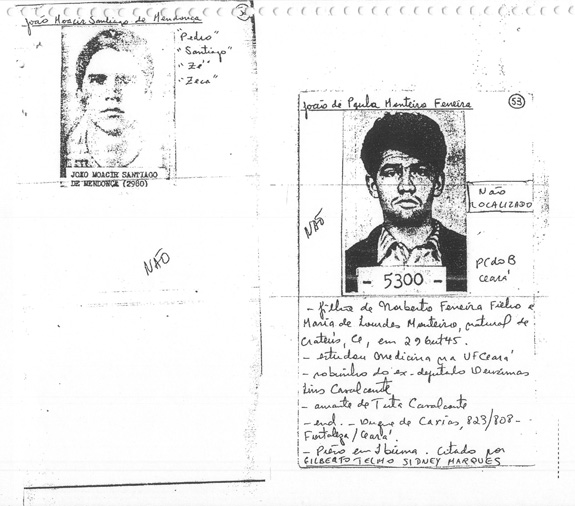 João Moacir Santiago de Mendonça
"Pedro"
"Santiago"
"Zé"
"Zeca"
JOÃO MOACIR SANTIAGO
DE MENDONÇA (2980)
NÃO
João de Paula Monteiro Ferreira
53
NÃO
NÃO
LOCALIZADO
PCdoB
Ceará
- 5300 -
- filho de Norberto Ferreira Filho e
Maria de Lourdes Monteiro, natural de
Crateús, CE, em 29 out 45.
- estudou medicina na UFCeará
- sobrinho do ex-deputado
Lins Cavalcante
- amante de Tita Cavalcante
- end. - Duque de Caxias, 823/808 -
Fortaleza/Ceará.
- Preso em Ibiúna. Citado por
GILBERTO TELMO SIDNEY MARQUES